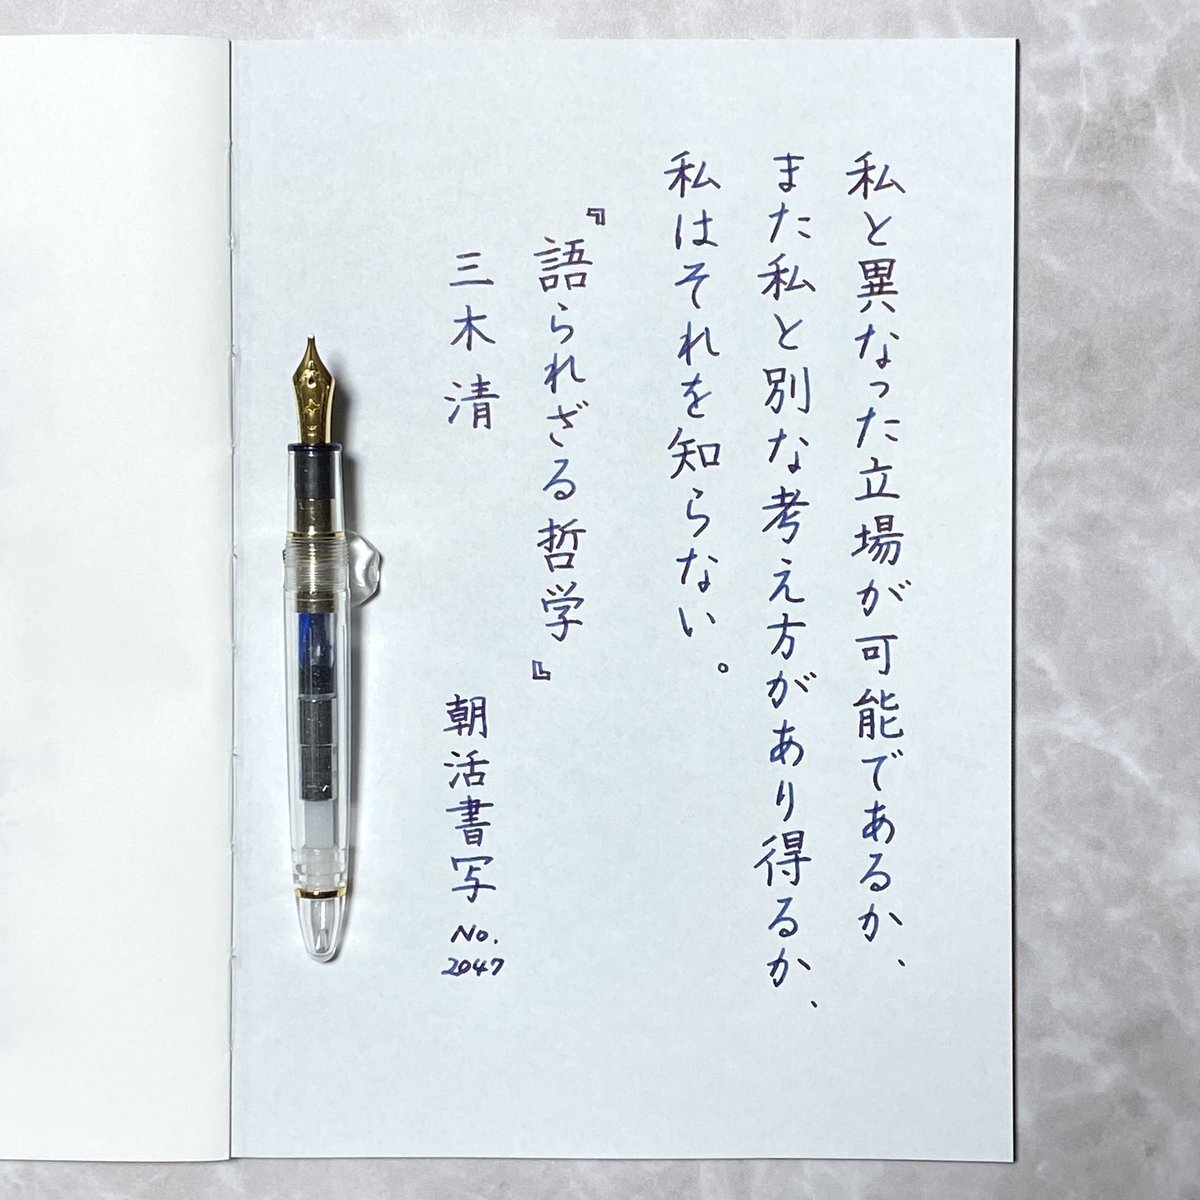 私と異なった立場が可能であるか、
また私と別な考え方があり得るか、
私はそれを知らない。
『語られざる哲学』
三木清
朝活書写 No. 2047